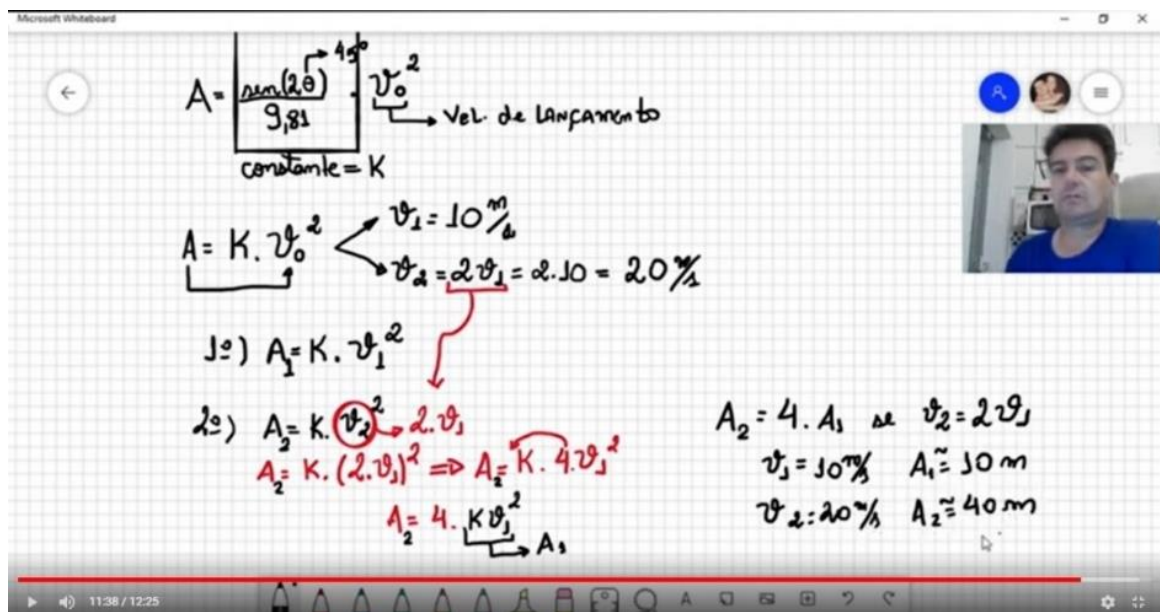 Microsoft Whiteboard
A = sen(2θ) / 9,81 . v₀²
45°
Vel. de Lançamento
constante = K
A = K. v₀²
v₁ = 10 m/s
v₂ = 2v₁ = 2.10 = 20 m/s
1º) A₁ = K. v₁²
2º) A₂ = K. v₂² → 2.v₁
A₂ = K. (2.v₁)² => A₂ = K. 4.v₁²
A₂ = 4. K v₁²
A₁
A₂ = 4. A₁ se v₂ = 2v₁
v₁ = 10 m/s A₁ ≅ 10 m
v₂ = 20 m/s A₂ ≅ 40 m
11:38 / 12:25